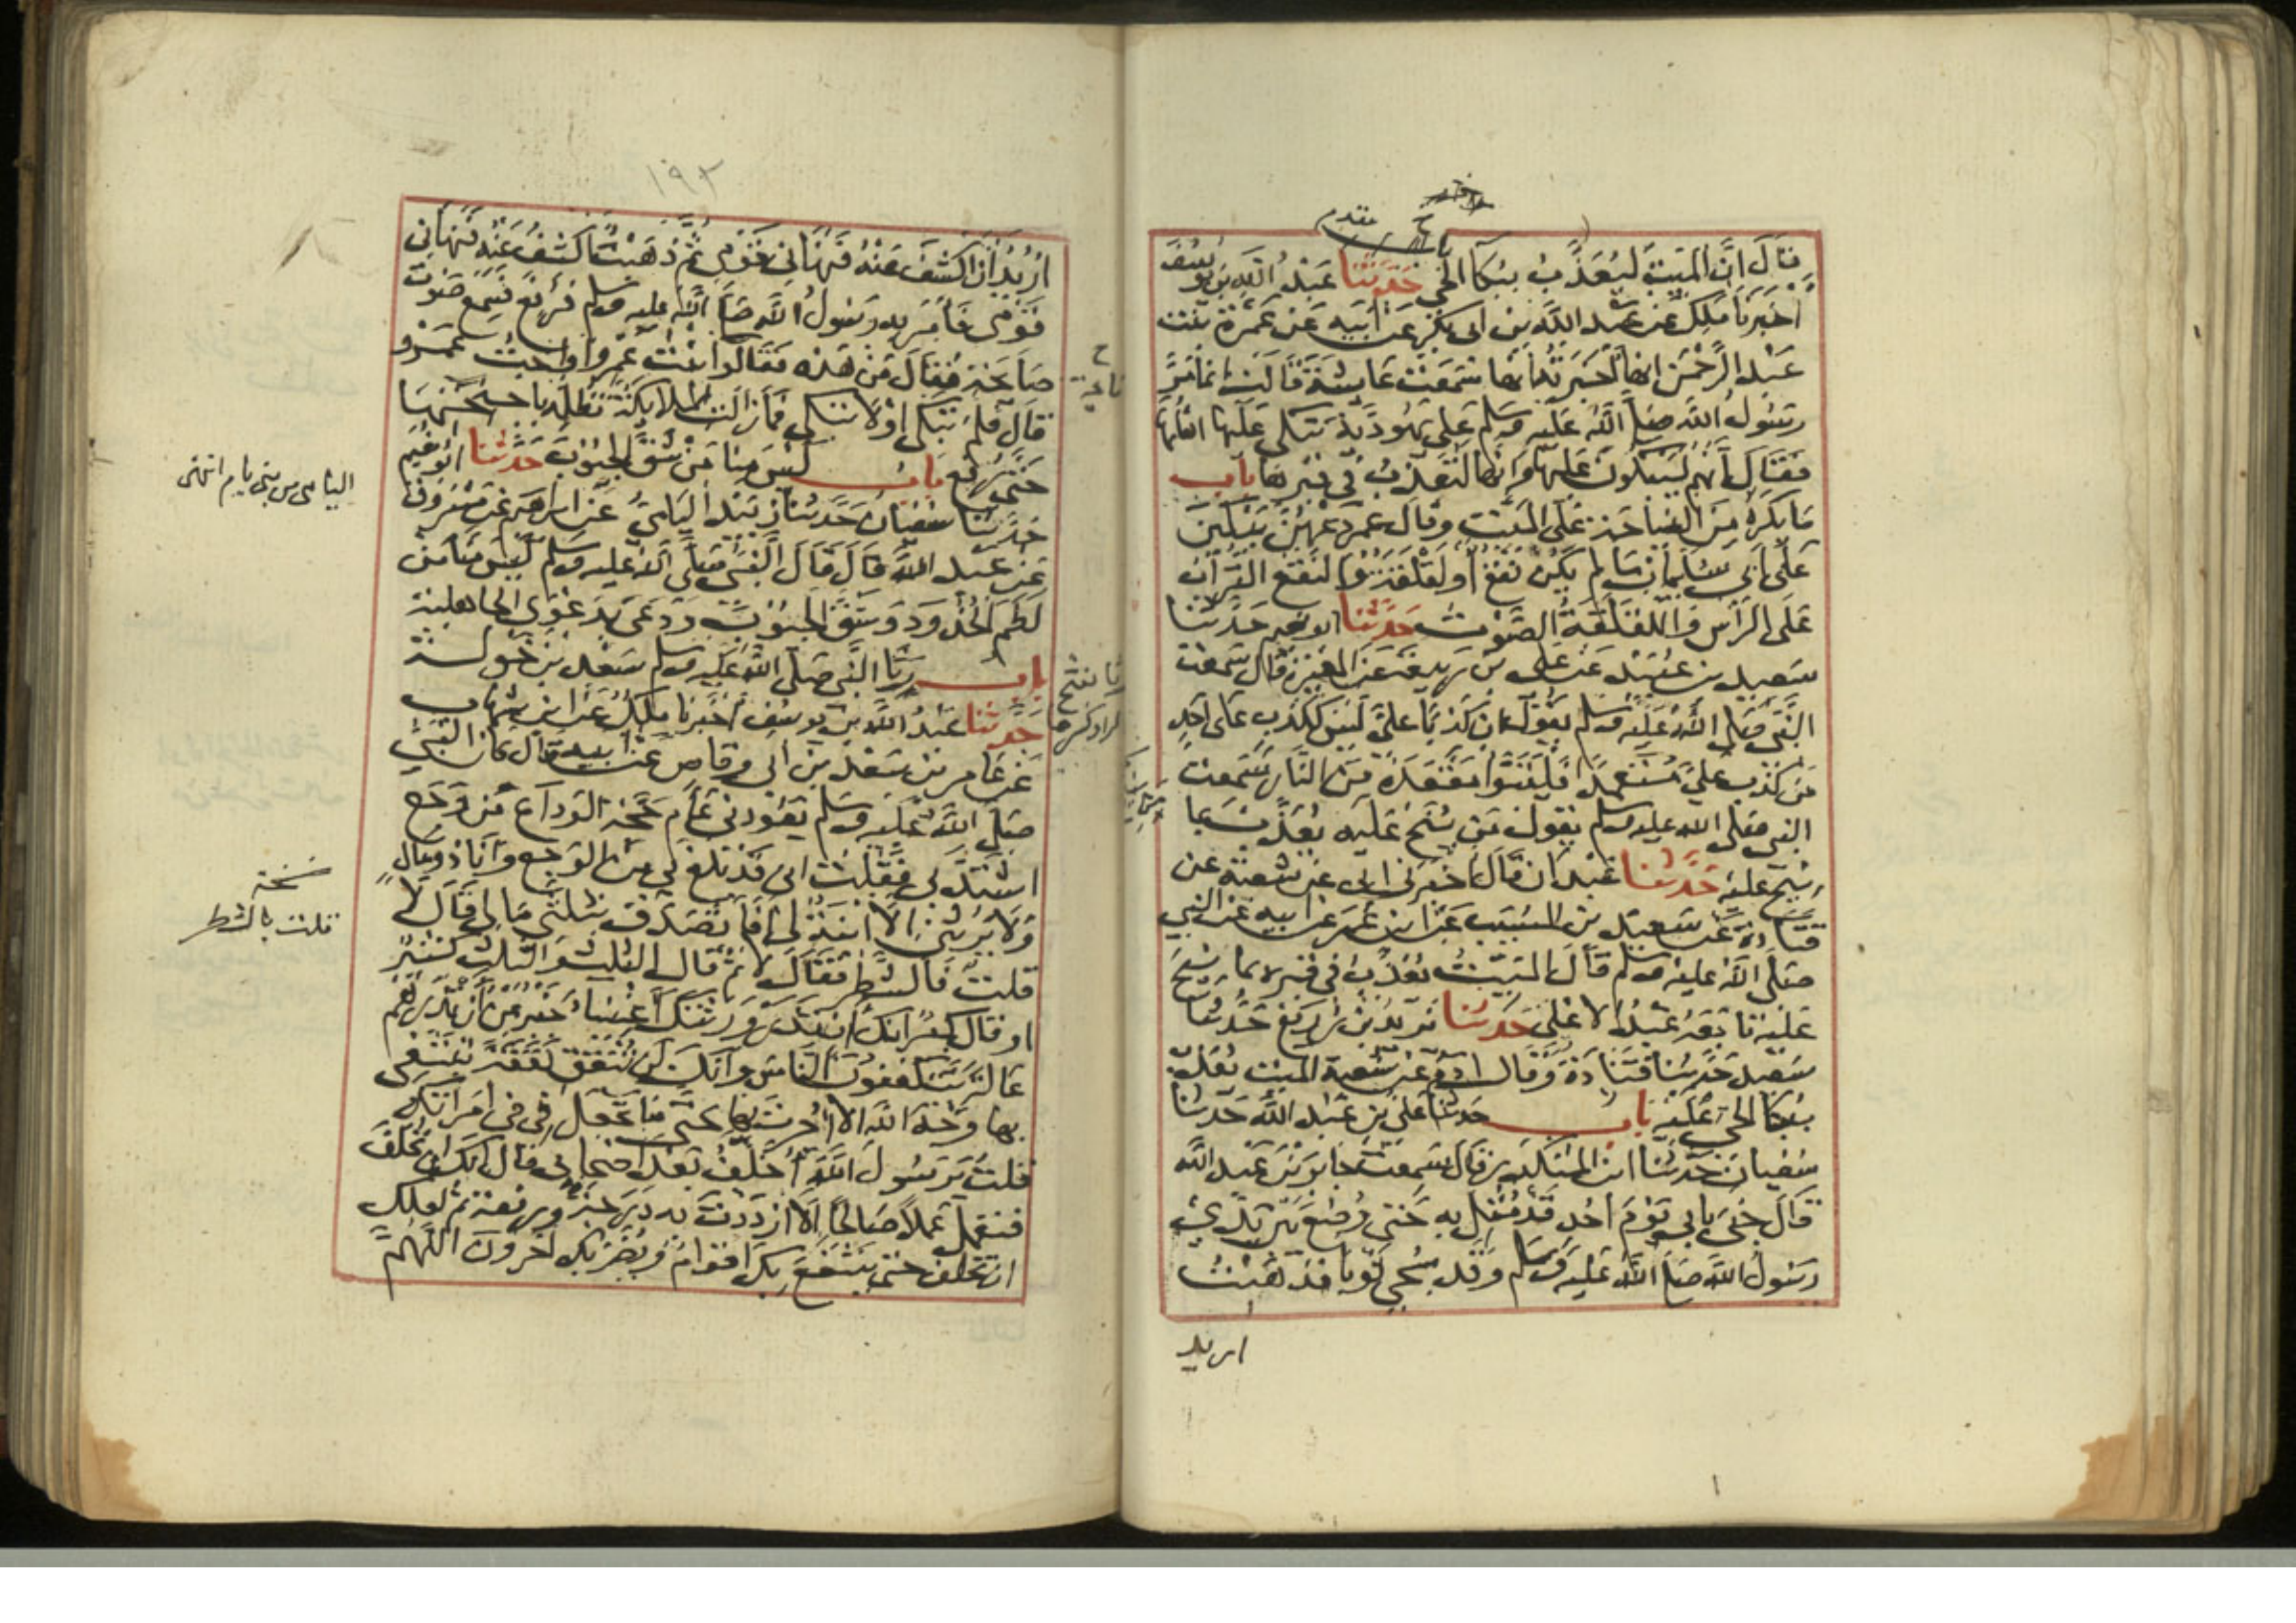 قال ان الميت ليعذب ببكا الحي حدثنا عبد الله بن يوسف
اخبرنا ملك عن عبد الله بن ابى بكر عن ابيه عن عمرة بنت
عبد الرحمن انها اخبرته انها سمعت عايشة قالت انما مر
رسول الله صلى الله عليه وسلم على يهودية يبكى عليها اهلها
فقال انهم ليبكون عليها وانها لتعذب فى قبرها باب
ما يكره من النياحة على الميت وقال عمر دعهن يبكين
على ابي سليمان ما لم يكن نقع او لقلقة والنقع التراب
على الراس واللقلقة الصوت حدثنا ابو نعيم حدثنا
سعيد بن عبيد عن على بن ربيعة عن المغيرة قال سمعت
النبى صلى الله عليه وسلم يقول ان كذبا على ليس ككذب على احد
من كذب على متعمدا فليتبوا مقعده من النار سمعت
النبى صلى الله عليه وسلم يقول من ينح عليه يعذب بما
نيح عليه حدثنا عبدان قال اخبرنى ابى عن شعبة عن
قتادة عن سعيد بن المسيب عن ابن عمر عن ابيه عن النبي
صلى الله عليه وسلم قال الميت يعذب فى قبره بما نيح
عليه تابعه عبد الاعلى حدثنا يزيد بن زريع حدثنا
سعيد حدثنا قتادة وقال ادم عن شعبة الميت يعذب
ببكا الحي عليه باب حدثنا على بن عبد الله حدثنا
سفيان حدثنا ابن المنكدر قال سمعت جابر بن عبد الله
قال جئ بابى يوم احد قد مثل به حتى وضع بين يدي
رسول الله صلى الله عليه وسلم وقد سجي ثوبا فذهبت
اريد
١٩٣
اريد ان اكشف عنه فنهانى قومى ثم ذهبت اكشف عنه فنهانى
قومى فامر به رسول الله صلى الله عليه وسلم فرفع فسمع صوت
صايحة فقال من هذه فقالوا ابنت عمرو او اخت عمرو
قال فلم تبكى او لا تبكى فما زالت الملايكة تظله باجنحتها
حتى رفع باب ليس منا من شق الجيوب حدثنا ابو نعيم
حدثنا سفيان حدثنا زبيد اليامي عن ابراهيم عن مسروق
عن عبد الله قال قال النبى صلى الله عليه وسلم ليس منا من
لطم الخدود وشق الجيوب ودعى بدعوى الجاهلية
باب رثا النبى صلى الله عليه وسلم سعد بن خولة
حدثنا عبد الله بن يوسف اخبرنا ملك عن ابن شهاب
عن عامر بن سعد بن ابى وقاص عن ابيه قال كان النبي
صلى الله عليه وسلم يعودنى عام حجة الوداع من وجع
اشتد بى فقلت انى قد بلغ بى من الوجع وانا ذو مال
ولا يرثنى الا ابنة لى افاتصدق بثلثي مالى قال لا
قلت فالشطر فقال لا ثم قال الثلث والثلث كبير
او قال كثير انك ان تذر ورثتك اغنياء خير من ان تذرهم
عالة يتكففون الناس وانك لن تنفق نفقة تبتغى
بها وجه الله الا اجرت بها حتى ما تجعل فى فى امراتك
فقلت يرسول الله اخلف بعد اصحابى قال انك لن تخلف
فتعمل عملا صالحا الا ازددت به درجة ورفعة ثم لعلك
ان تخلف حتى ينتفع بك اقوام ويضر بك اخرون اللهم
اليامى من بنى يام انتهى
نسخة
قلت بالشطر